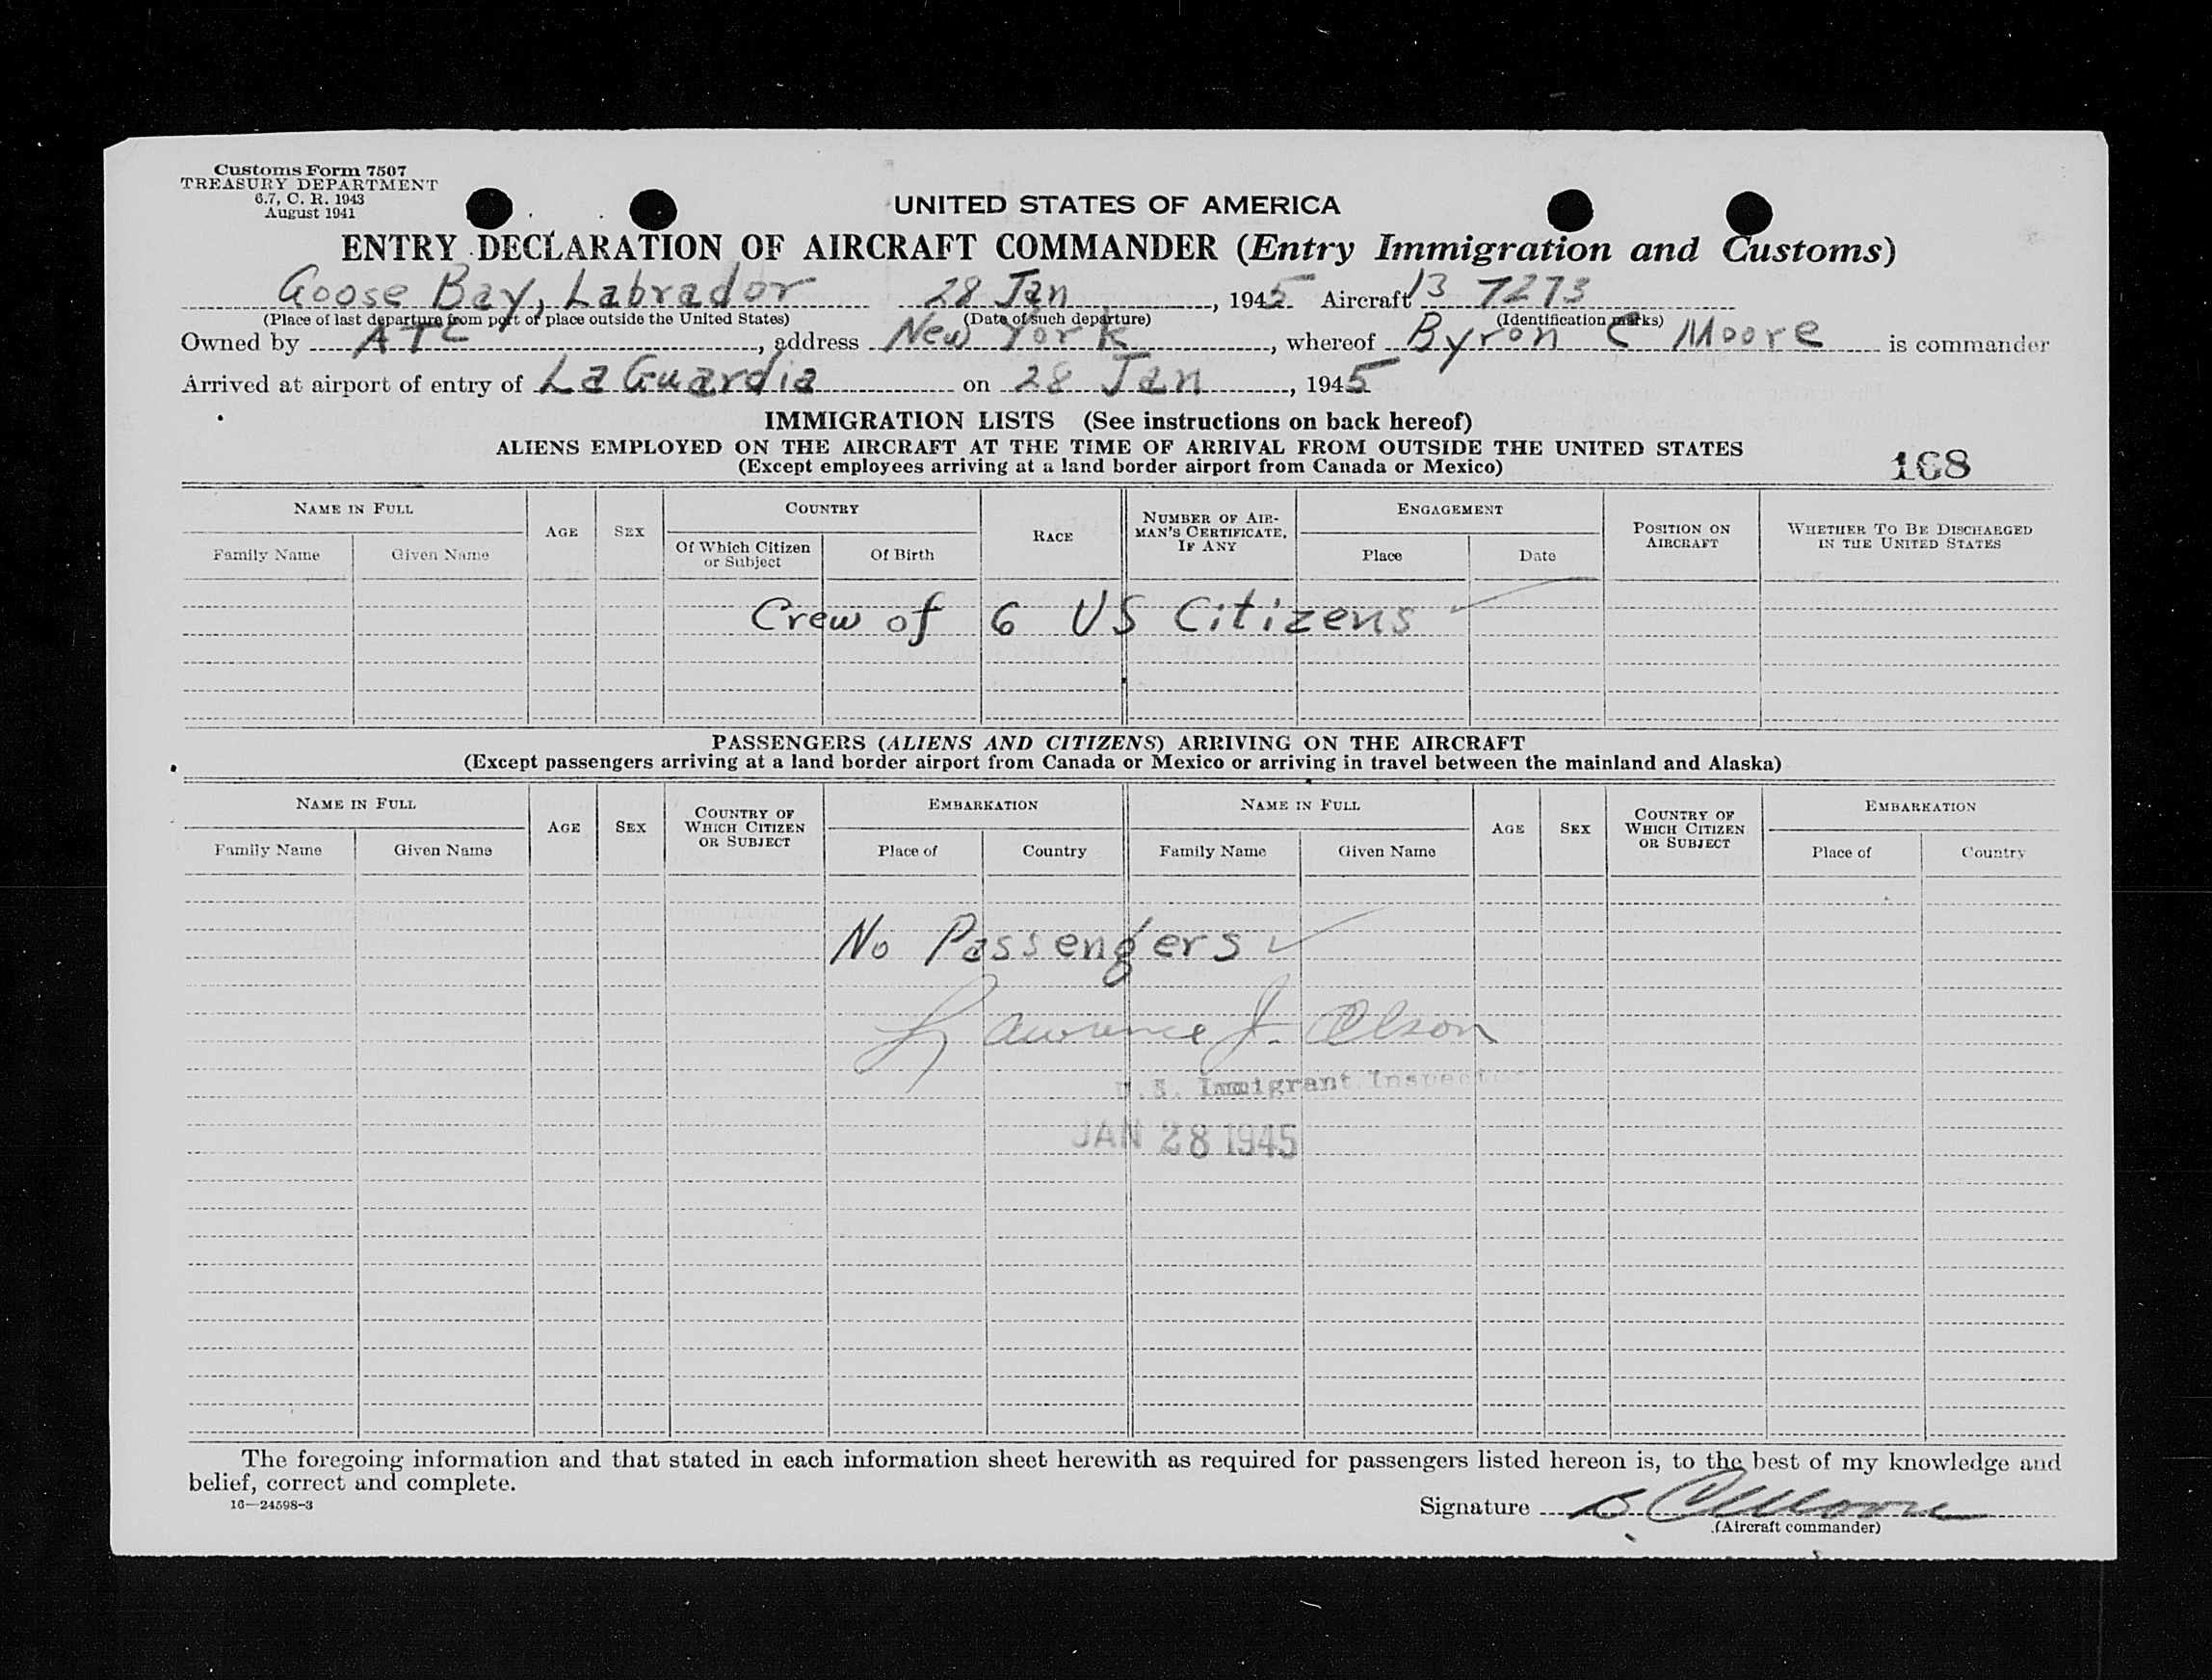 Customs Form 7507
TREASURY DEPARTMENT
6.7, C. R. 1943
August 1941
UNITED STATES OF AMERICA
ENTRY DECLARATION OF AIRCRAFT COMMANDER (Entry Immigration and Customs)
Goose Bay, Labrador 28 Jan, 1945 Aircraft 13 7273
(Place of last departure from port or place outside the United States) (Date of such departure) (Identification marks)
Owned by ATC, address New York, whereof Byron C Moore is commander
Arrived at airport of entry of LaGuardia on 28 Jan, 1945
IMMIGRATION LISTS (See instructions on back hereof)
ALIENS EMPLOYED ON THE AIRCRAFT AT THE TIME OF ARRIVAL FROM OUTSIDE THE UNITED STATES
(Except employees arriving at a land border airport from Canada or Mexico)
168
NAME IN FULL
Family Name Given Name
AGE
SEX
COUNTRY
Of Which Citizen or Subject
Of Birth
RACE
NUMBER OF AIR-
MAN'S CERTIFICATE,
IF ANY
ENGAGEMENT
Place Date
POSITION ON
AIRCRAFT
WHETHER TO BE DISCHARGED
IN THE UNITED STATES
Crew of 6 US Citizens ✓
PASSENGERS (ALIENS AND CITIZENS) ARRIVING ON THE AIRCRAFT
(Except passengers arriving at a land border airport from Canada or Mexico or arriving in travel between the mainland and Alaska)
NAME IN FULL
Family Name Given Name
AGE
SEX
COUNTRY OF
WHICH CITIZEN
OR SUBJECT
EMBARKATION
Place of Country
NAME IN FULL
Family Name Given Name
AGE
SEX
COUNTRY OF
WHICH CITIZEN
OR SUBJECT
EMBARKATION
Place of Country
No Passengers ✓
Lawrence J. Olson
U.S. Immigrant Inspector
JAN 28 1945
The foregoing information and that stated in each information sheet herewith as required for passengers listed hereon is, to the best of my knowledge and
belief, correct and complete.
16—24598-3
Signature B C Moore
(Aircraft commander)